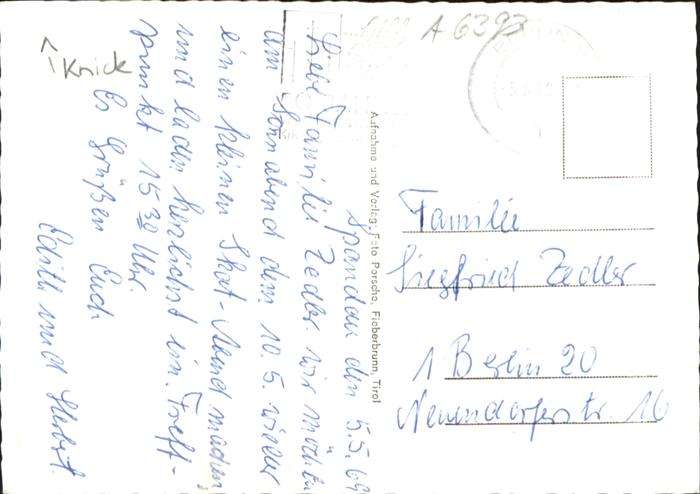 A 6393
Knick
Spandau den 5.5.69
Liebe Familie Zedler wir möchten
am Sonnabend dem 10.5. wieder
einen kleinen Skat-Abend machen
und laden herzlichst ein. Treff-
punkt 15 30 Uhr.
Es Grüßen Euch
Edith und Herbst.
Aufnahme und Verlag: Foto Porsche, Fieberbrunn, Tirol
Familie
Siegfried Zedler
1 Berlin 20
Neuendorferstr. 16